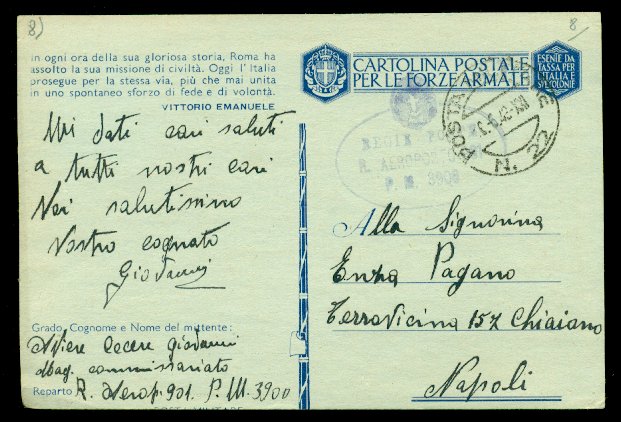 8)
8
in ogni ora della sua gloriosa storia, Roma ha
assolto la sua missione di civiltà. Oggi l'Italia
prosegue per la stessa via, più che mai unita
in uno spontaneo sforzo di fede e di volontà.
VITTORIO EMANUELE
CARTOLINA POSTALE
PER LE FORZE ARMATE
ESENTE DA
TASSA PER
L'ITALIA E
COLONIE
POSTA
N. 22
P. M. 3900
dati cari saluti
a tutti nostri cari
Voi salutissimo
Vostro cognato
Giovanni
Grado, Cognome e Nome del mittente:
Aviere Cecere Giovanni
Mag. commissariato
Reparto R. Aerop. 901. P. M. 3900
Alla Signorina
Enza Pagano
Terravicina 157 Chiaiano
Napoli